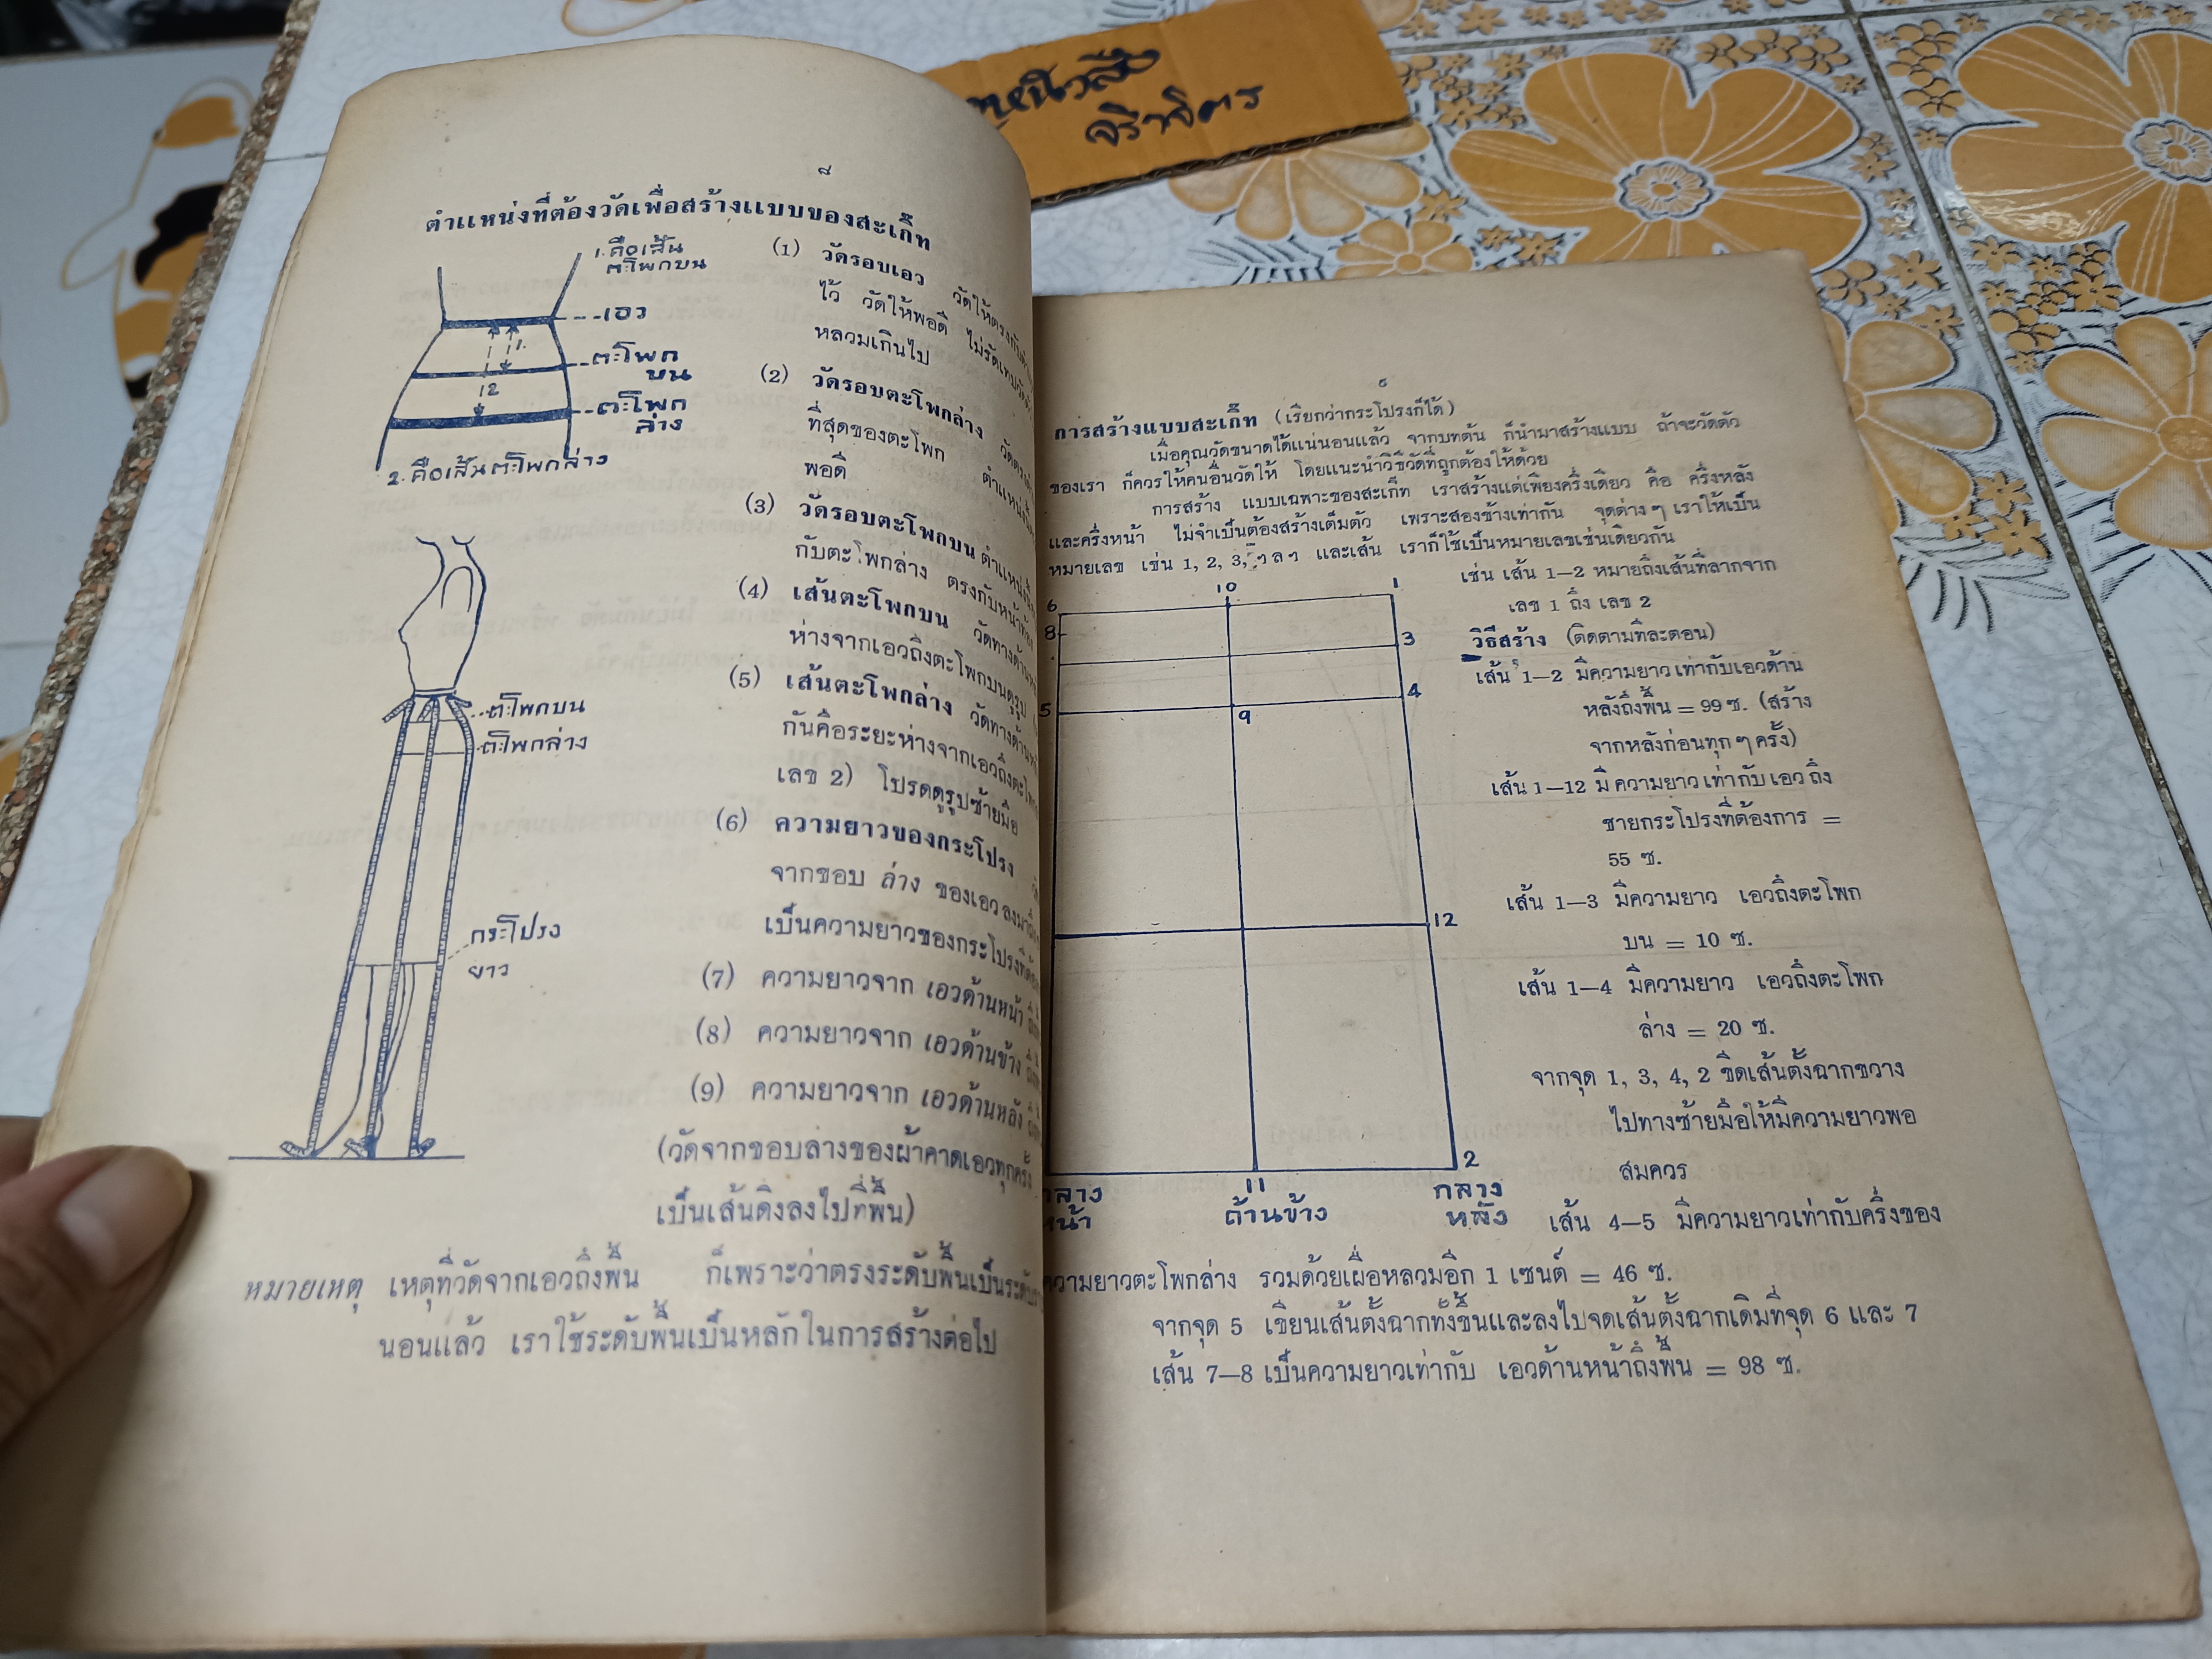 จิราจิตร
๘
ตำแหน่งที่ต้องวัดเพื่อสร้างแบบของสะเก๊ท
1. คือเส้น
ตะโพกบน
เอว
1.
ตะโพก
บน
2
ตะโพก
ล่าง
2. คือเส้นตะโพกล่าง
ตะโพกบน
ตะโพกล่าง
กระโปรง
ยาว
(1) วัดรอบเอว วัดให้ตรงกับ
ไว้ วัดให้พอดี ไม่รัดเทป
หลวมเกินไป
(2) วัดรอบตะโพกล่าง วัดตรง
ที่สุดของตะโพก ตำแหน่ง
พอดี
(3) วัดรอบตะโพกบน ตำแหน่ง
กับตะโพกล่าง ตรงกับหน้าท้อง
(4) เส้นตะโพกบน วัดทางด้าน
ห่างจากเอวถึงตะโพกบนดูรูป
(5) เส้นตะโพกล่าง วัดทางด้าน
กันคือระยะห่างจากเอวถึงตะโพก
เลข 2) โปรดดูรูปซ้ายมือ
(6) ความยาวของกระโปรง
จากขอบ ล่าง ของเอวลงมา
เป็นความยาวของกระโปรงที่
(7) ความยาวจาก เอวด้านหน้า
(8) ความยาวจาก เอวด้านข้าง
(9) ความยาวจาก เอวด้านหลัง
(วัดจากขอบล่างของผ้าคาดเอวทุกครั้ง
เป็นเส้นดิ่งลงไปที่พื้น)
หมายเหตุ เหตุที่วัดจากเอวถึงพื้น ก็เพราะว่าตรงระดับพื้นเป็น
นอนแล้ว เราใช้ระดับพื้นเป็นหลักในการสร้างต่อไป
๙
การสร้างแบบสะเก๊ท (เรียกว่ากระโปรงก็ได้)
เมื่อคุณวัดขนาดได้แน่นอนแล้ว จากบทต้น ก็นำมาสร้างแบบ ถ้าจะวัดตัว
ของเรา ก็ควรให้คนอื่นวัดให้ โดยแนะนำวิธีวัดที่ถูกต้องให้ด้วย
การสร้าง แบบเฉพาะของสะเก๊ท เราสร้างแต่เพียงครึ่งเดียว คือ ครึ่งหลัง
และครึ่งหน้า ไม่จำเป็นต้องสร้างเต็มตัว เพราะสองข้างเท่ากัน จุดต่าง ๆ เราให้เป็น
หมายเลข เช่น 1, 2, 3, ฯลฯ และเส้น เราก็ใช้เป็นหมายเลขเช่นเดียวกัน
เช่น เส้น 1—2 หมายถึงเส้นที่ลากจาก
เลข 1 ถึง เลข 2
วิธีสร้าง (ติดตามทีละตอน)
เส้น 1—2 มีความยาวเท่ากับเอวด้าน
หลังถึงพื้น = 99 ซ. (สร้าง
จากหลังก่อนทุก ๆ ครั้ง)
เส้น 1—12 มีความยาวเท่ากับเอวถึง
ชายกระโปรงที่ต้องการ =
55 ซ.
เส้น 1—3 มีความยาว เอวถึงตะโพก
บน = 10 ซ.
เส้น 1—4 มีความยาว เอวถึงตะโพก
ล่าง = 20 ซ.
จากจุด 1, 3, 4, 2 ขีดเส้นตั้งฉากขวาง
ไปทางซ้ายมือให้มีความยาวพอ
สมควร
6
10
1
8
3
5
9
4
12
11
2
กลาง
หน้า
ด้านข้าง
กลาง
หลัง
เส้น 4—5 มีความยาวเท่ากับครึ่งของ
ความยาวตะโพกล่าง รวมด้วยเผื่อหลวมอีก 1 เซนต์ = 46 ซ.
จากจุด 5 เขียนเส้นตั้งฉากทั้งขึ้นและลงไปจดเส้นตั้งฉากเดิมที่จุด 6 และ 7
เส้น 7—8 เป็นความยาวเท่ากับ เอวด้านหน้าถึงพื้น = 98 ซ.